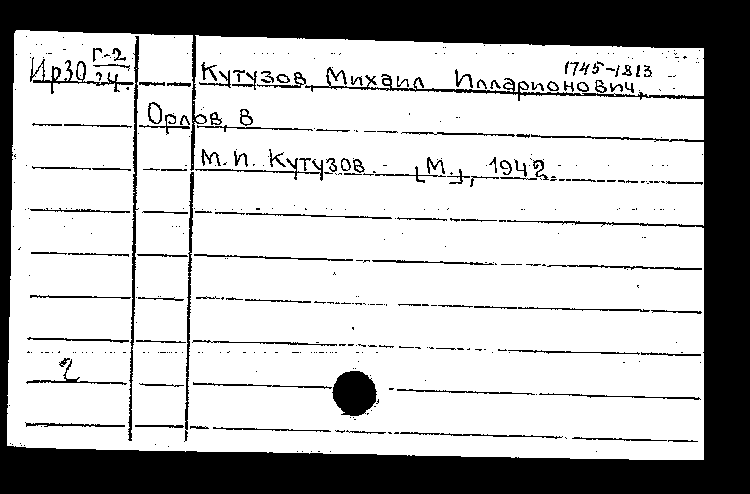 Ир30 Г-2/24. Кутузов, Михаил Илларионович, 1745-1813
Орлов, В
М.И. Кутузов. [М.], 1942.
2